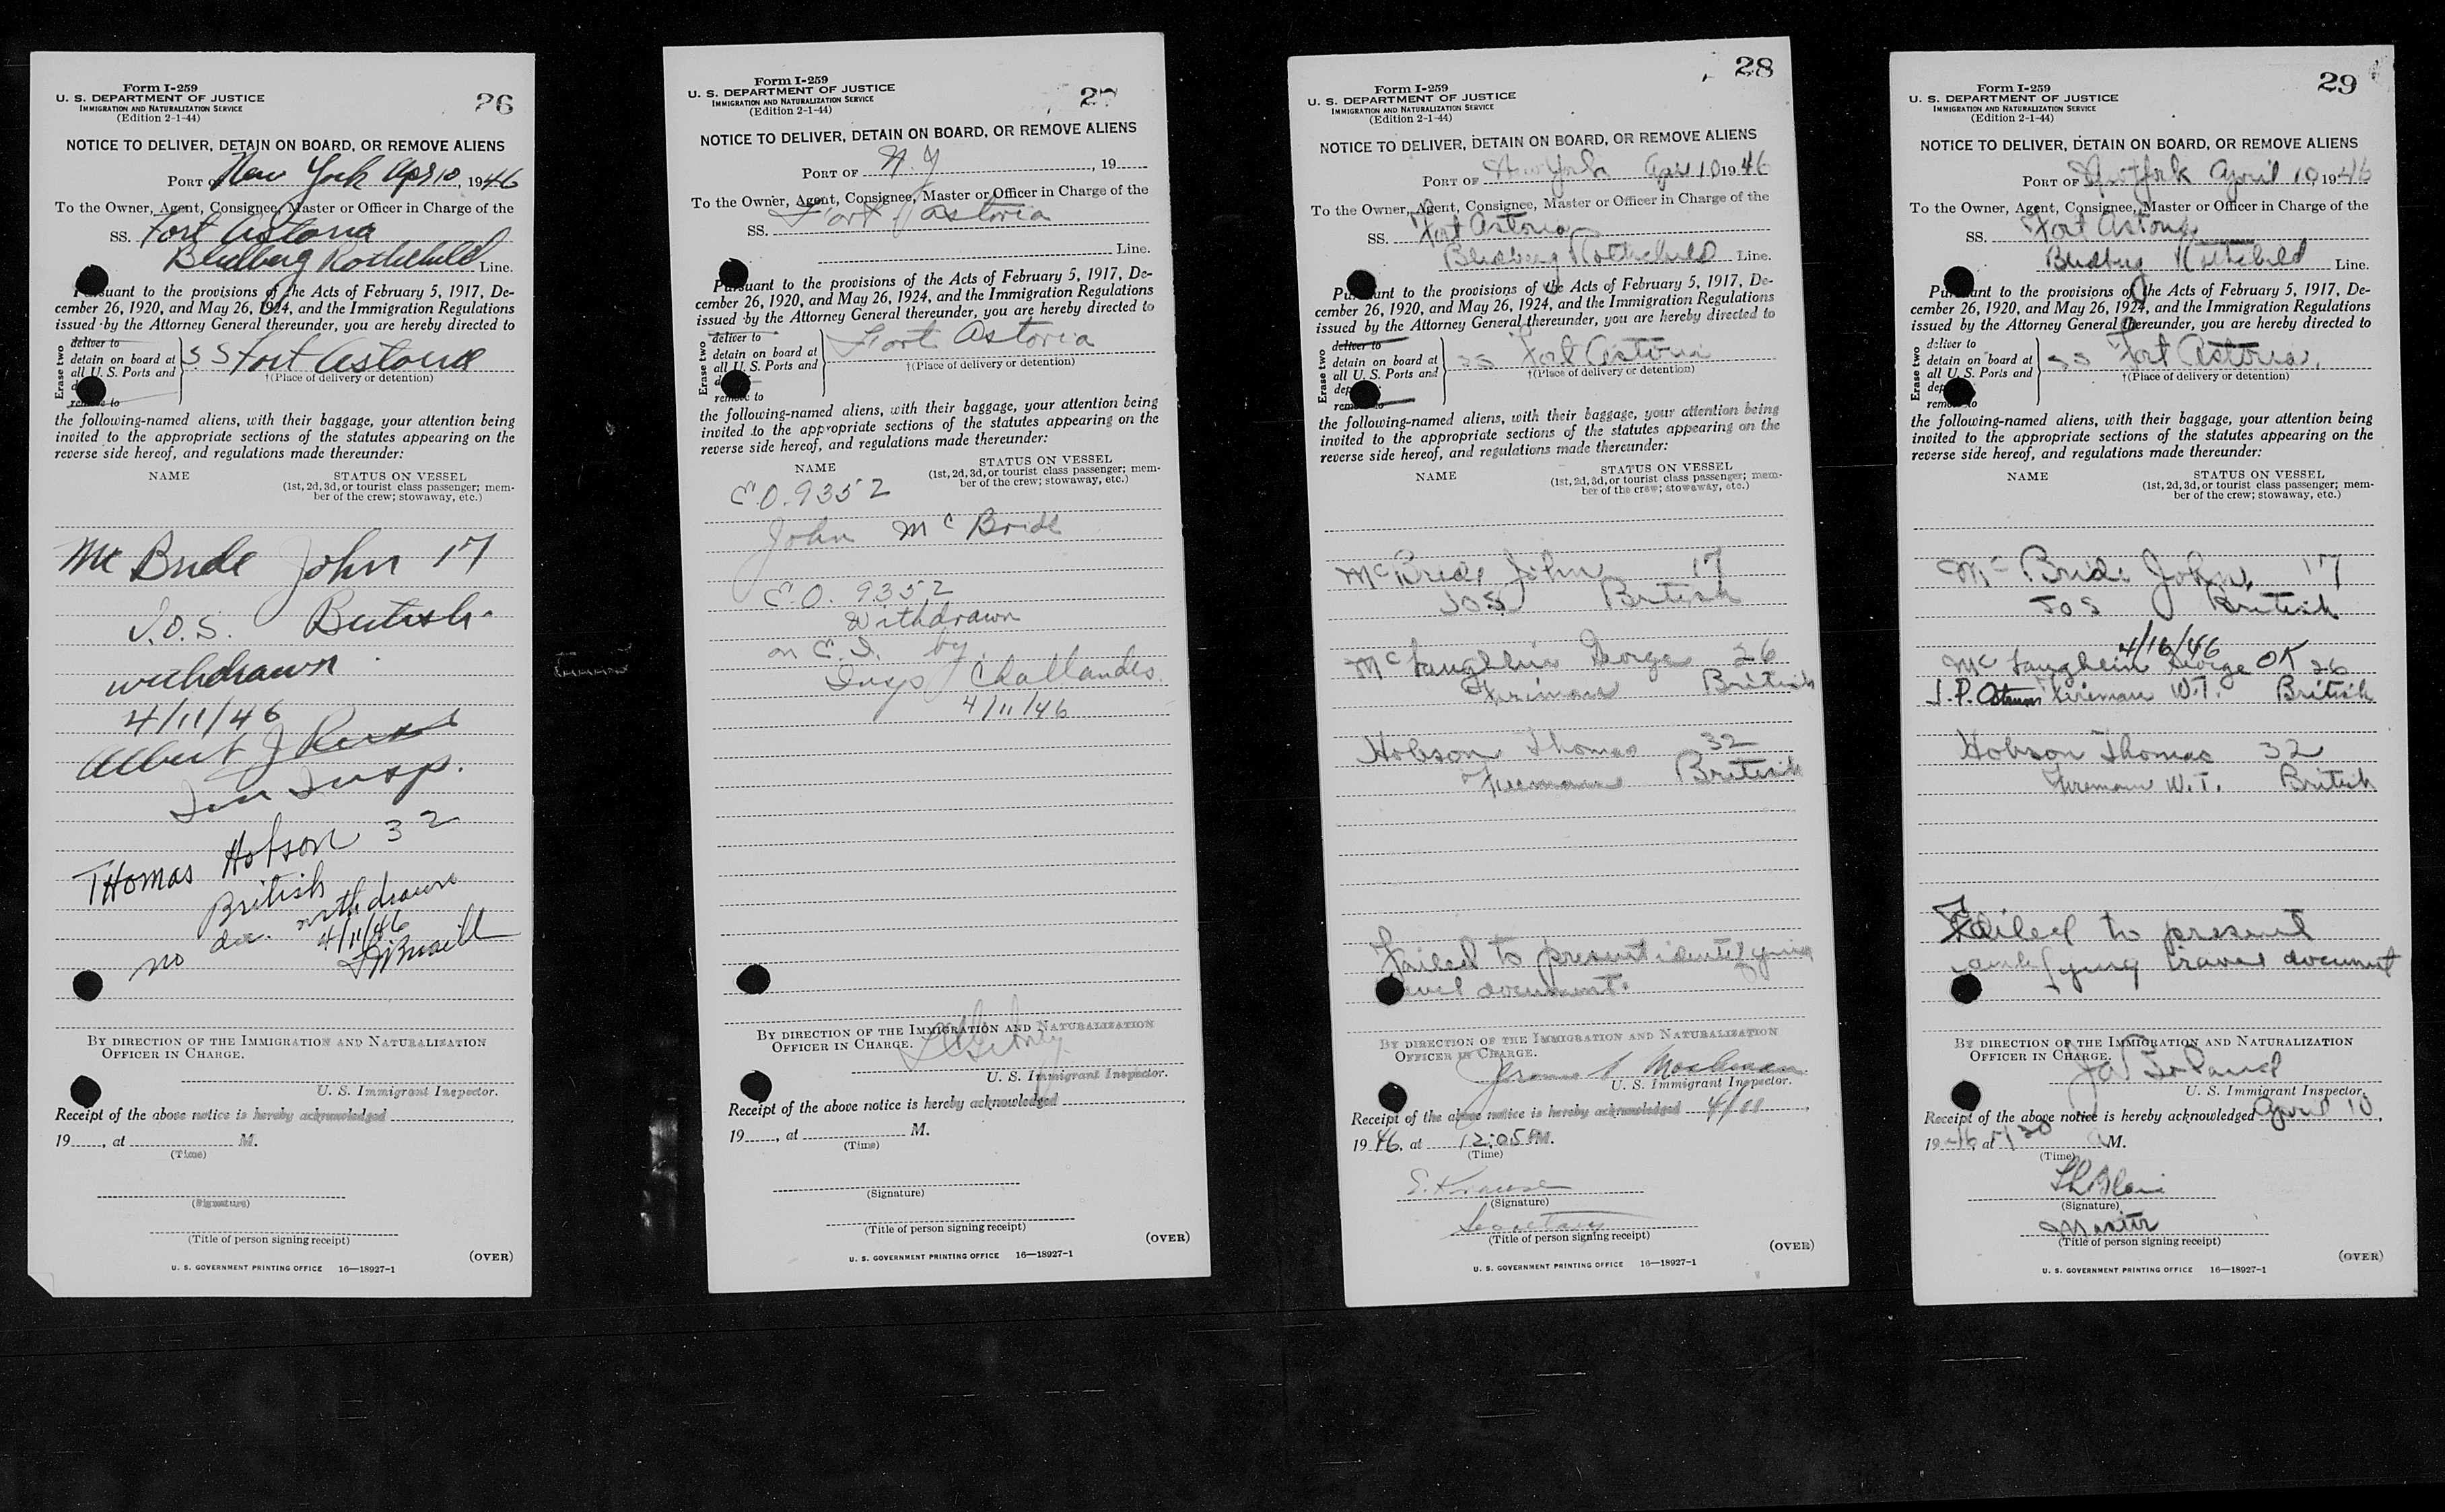 26
Form I-259
U. S. DEPARTMENT OF JUSTICE
IMMIGRATION AND NATURALIZATION SERVICE
(Edition 2-1-44)
NOTICE TO DELIVER, DETAIN ON BOARD, OR REMOVE ALIENS
PORT OF New York Apr 10, 1946
To the Owner, Agent, Consignee, Master or Officer in Charge of the
SS. Fort Astoria
Rothchild Line.
Pursuant to the provisions of the Acts of February 5, 1917, De-
cember 26, 1920, and May 26, 1924, and the Immigration Regulations
issued by the Attorney General thereunder, you are hereby directed to
Erase two
deliver to
detain on board at
all U. S. Ports and
remove to
SS Fort Astoria
†(Place of delivery or detention)
the following-named aliens, with their baggage, your attention being
invited to the appropriate sections of the statutes appearing on the
reverse side hereof, and regulations made thereunder:
NAME STATUS ON VESSEL
(1st, 2d, 3d, or tourist class passenger; mem-
ber of the crew; stowaway, etc.)
Mc Bride John 17
J.O.S. British
withdrawn
4/11/46
Albert J
Imm Insp.
THomas Hobson 32
British
no doc. withdrawn
4/11/46
BY DIRECTION OF THE IMMIGRATION AND NATURALIZATION
OFFICER IN CHARGE.
U. S. Immigrant Inspector.
Receipt of the above notice is hereby acknowledged
19___, at ___ M.
(Time)
(Signature)
(Title of person signing receipt)
(OVER)
U. S. GOVERNMENT PRINTING OFFICE 16—18927-1
27
Form I-259
U. S. DEPARTMENT OF JUSTICE
IMMIGRATION AND NATURALIZATION SERVICE
(Edition 2-1-44)
NOTICE TO DELIVER, DETAIN ON BOARD, OR REMOVE ALIENS
PORT OF N.Y, 19
To the Owner, Agent, Consignee, Master or Officer in Charge of the
SS. Fort Astoria
Line.
Pursuant to the provisions of the Acts of February 5, 1917, De-
cember 26, 1920, and May 26, 1924, and the Immigration Regulations
issued by the Attorney General thereunder, you are hereby directed to
Erase two
deliver to
detain on board at
all U. S. Ports and
remove to
Fort Astoria
†(Place of delivery or detention)
the following-named aliens, with their baggage, your attention being
invited to the appropriate sections of the statutes appearing on the
reverse side hereof, and regulations made thereunder:
NAME STATUS ON VESSEL
(1st, 2d, 3d, or tourist class passenger; mem-
ber of the crew; stowaway, etc.)
E.O. 9352
John McBride
E.O. 9352
Withdrawn
on C.I. by
Insp Challandes
4/11/46
BY DIRECTION OF THE IMMIGRATION AND NATURALIZATION
OFFICER IN CHARGE.
U. S. Immigrant Inspector.
Receipt of the above notice is hereby acknowledged
19___, at ___ M.
(Time)
(Signature)
(Title of person signing receipt)
(OVER)
U. S. GOVERNMENT PRINTING OFFICE 16—18927-1
28
Form I-259
U. S. DEPARTMENT OF JUSTICE
IMMIGRATION AND NATURALIZATION SERVICE
(Edition 2-1-44)
NOTICE TO DELIVER, DETAIN ON BOARD, OR REMOVE ALIENS
PORT OF New York April 10 1946
To the Owner, Agent, Consignee, Master or Officer in Charge of the
SS. Fort Astoria
Rothchild Line.
Pursuant to the provisions of the Acts of February 5, 1917, De-
cember 26, 1920, and May 26, 1924, and the Immigration Regulations
issued by the Attorney General thereunder, you are hereby directed to
Erase two
deliver to
detain on board at
all U. S. Ports and
remove to
SS Fort Astoria
†(Place of delivery or detention)
the following-named aliens, with their baggage, your attention being
invited to the appropriate sections of the statutes appearing on the
reverse side hereof, and regulations made thereunder:
NAME STATUS ON VESSEL
(1st, 2d, 3d, or tourist class passenger; mem-
ber of the crew; stowaway, etc.)
McBride John 17
JOS British
McLaughlin George 26
Fireman British
Hobson Thomas 32
Fireman British
Failed to present identifying
travel document.
BY DIRECTION OF THE IMMIGRATION AND NATURALIZATION
OFFICER IN CHARGE.
U. S. Immigrant Inspector.
Receipt of the above notice is hereby acknowledged 4/11,
1946, at 12:05 PM.
(Time)
E. Krause
(Signature)
Secretary
(Title of person signing receipt)
(OVER)
U. S. GOVERNMENT PRINTING OFFICE 16—18927-1
29
Form I-259
U. S. DEPARTMENT OF JUSTICE
IMMIGRATION AND NATURALIZATION SERVICE
(Edition 2-1-44)
NOTICE TO DELIVER, DETAIN ON BOARD, OR REMOVE ALIENS
PORT OF New York April 10 1946
To the Owner, Agent, Consignee, Master or Officer in Charge of the
SS. Fort Astoria
Rothchild Line.
Pursuant to the provisions of the Acts of February 5, 1917, De-
cember 26, 1920, and May 26, 1924, and the Immigration Regulations
issued by the Attorney General thereunder, you are hereby directed to
Erase two
deliver to
detain on board at
all U. S. Ports and
remove to
SS Fort Astoria
†(Place of delivery or detention)
the following-named aliens, with their baggage, your attention being
invited to the appropriate sections of the statutes appearing on the
reverse side hereof, and regulations made thereunder:
NAME STATUS ON VESSEL
(1st, 2d, 3d, or tourist class passenger; mem-
ber of the crew; stowaway, etc.)
McBride John 17
JOS British
4/16/46
McLaughlin George OK 26
Fireman W.T. British
Hobson Thomas 32
Fireman W.T. British
Failed to present
identifying travel document
BY DIRECTION OF THE IMMIGRATION AND NATURALIZATION
OFFICER IN CHARGE.
U. S. Immigrant Inspector.
Receipt of the above notice is hereby acknowledged April 10,
1946, at AM.
(Time)
(Signature)
Master
(Title of person signing receipt)
(OVER)
U. S. GOVERNMENT PRINTING OFFICE 16—18927-1